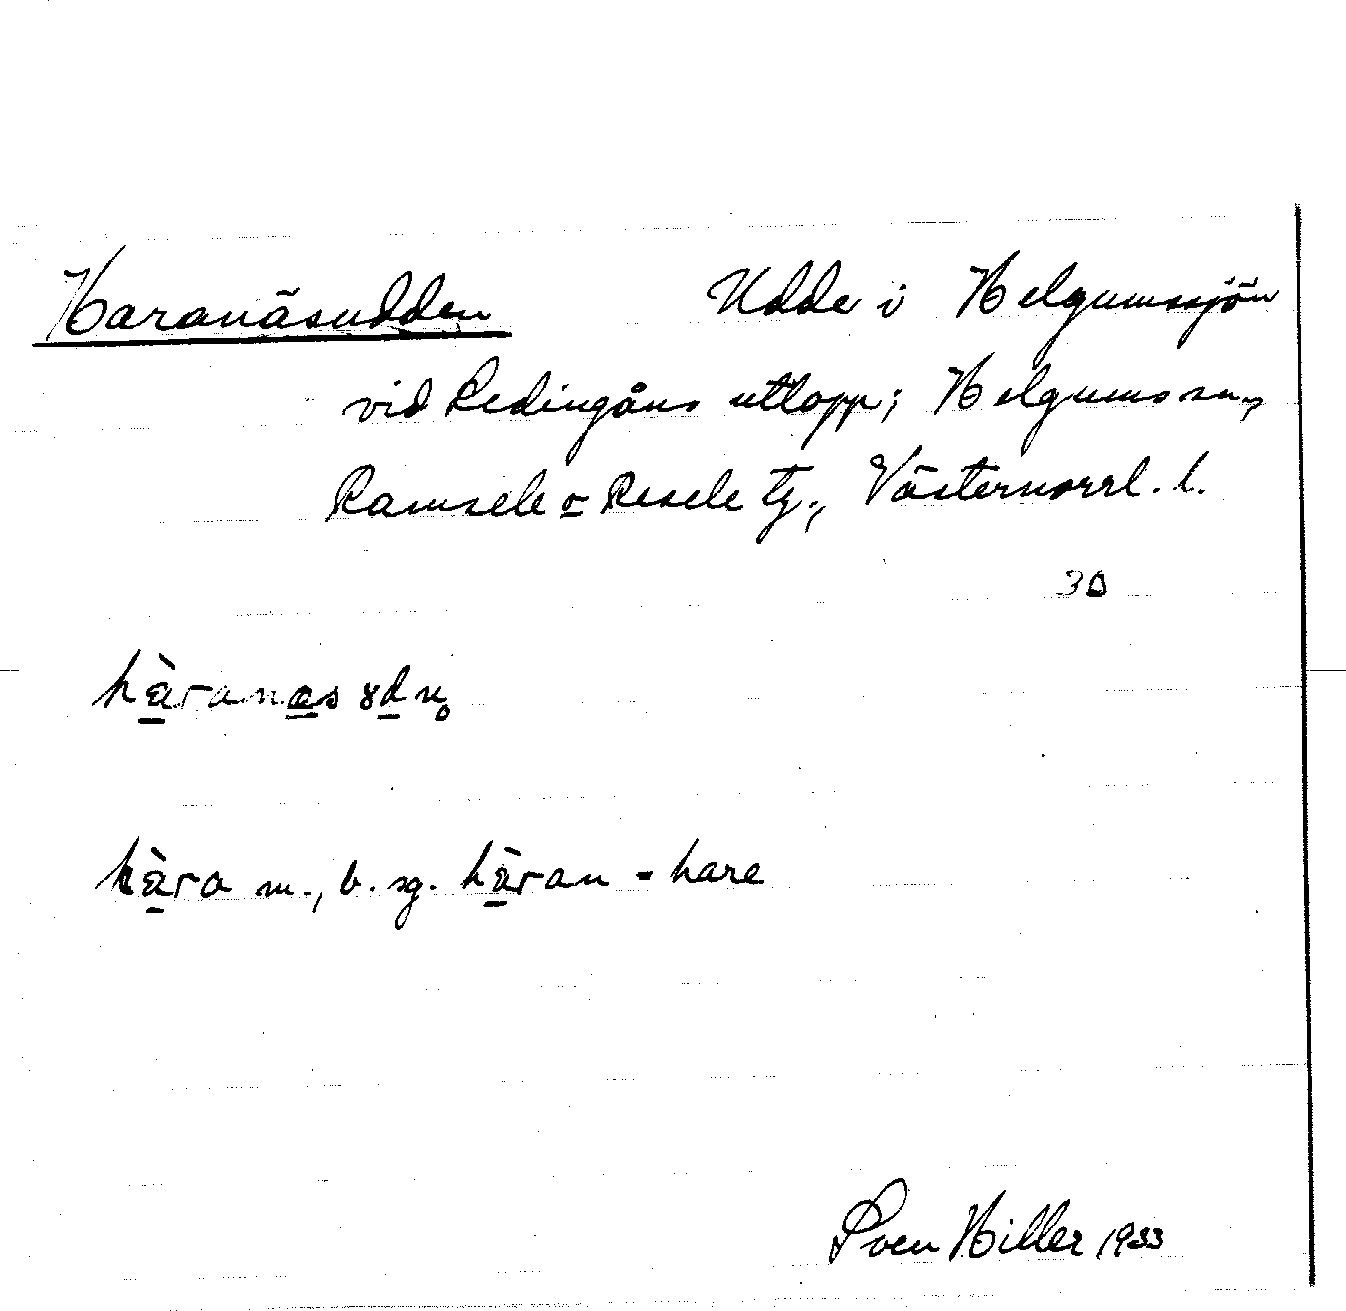 Haranäsudden Udde i Helgumssjön
vid Redingåns utlopp; Helgums sn,
Ramsele o Resele tg., Västernorrl. l.
30
hàranæs ɤdn̥
hàra m., b. sg. hàran = hare
Sven Hiller 1933